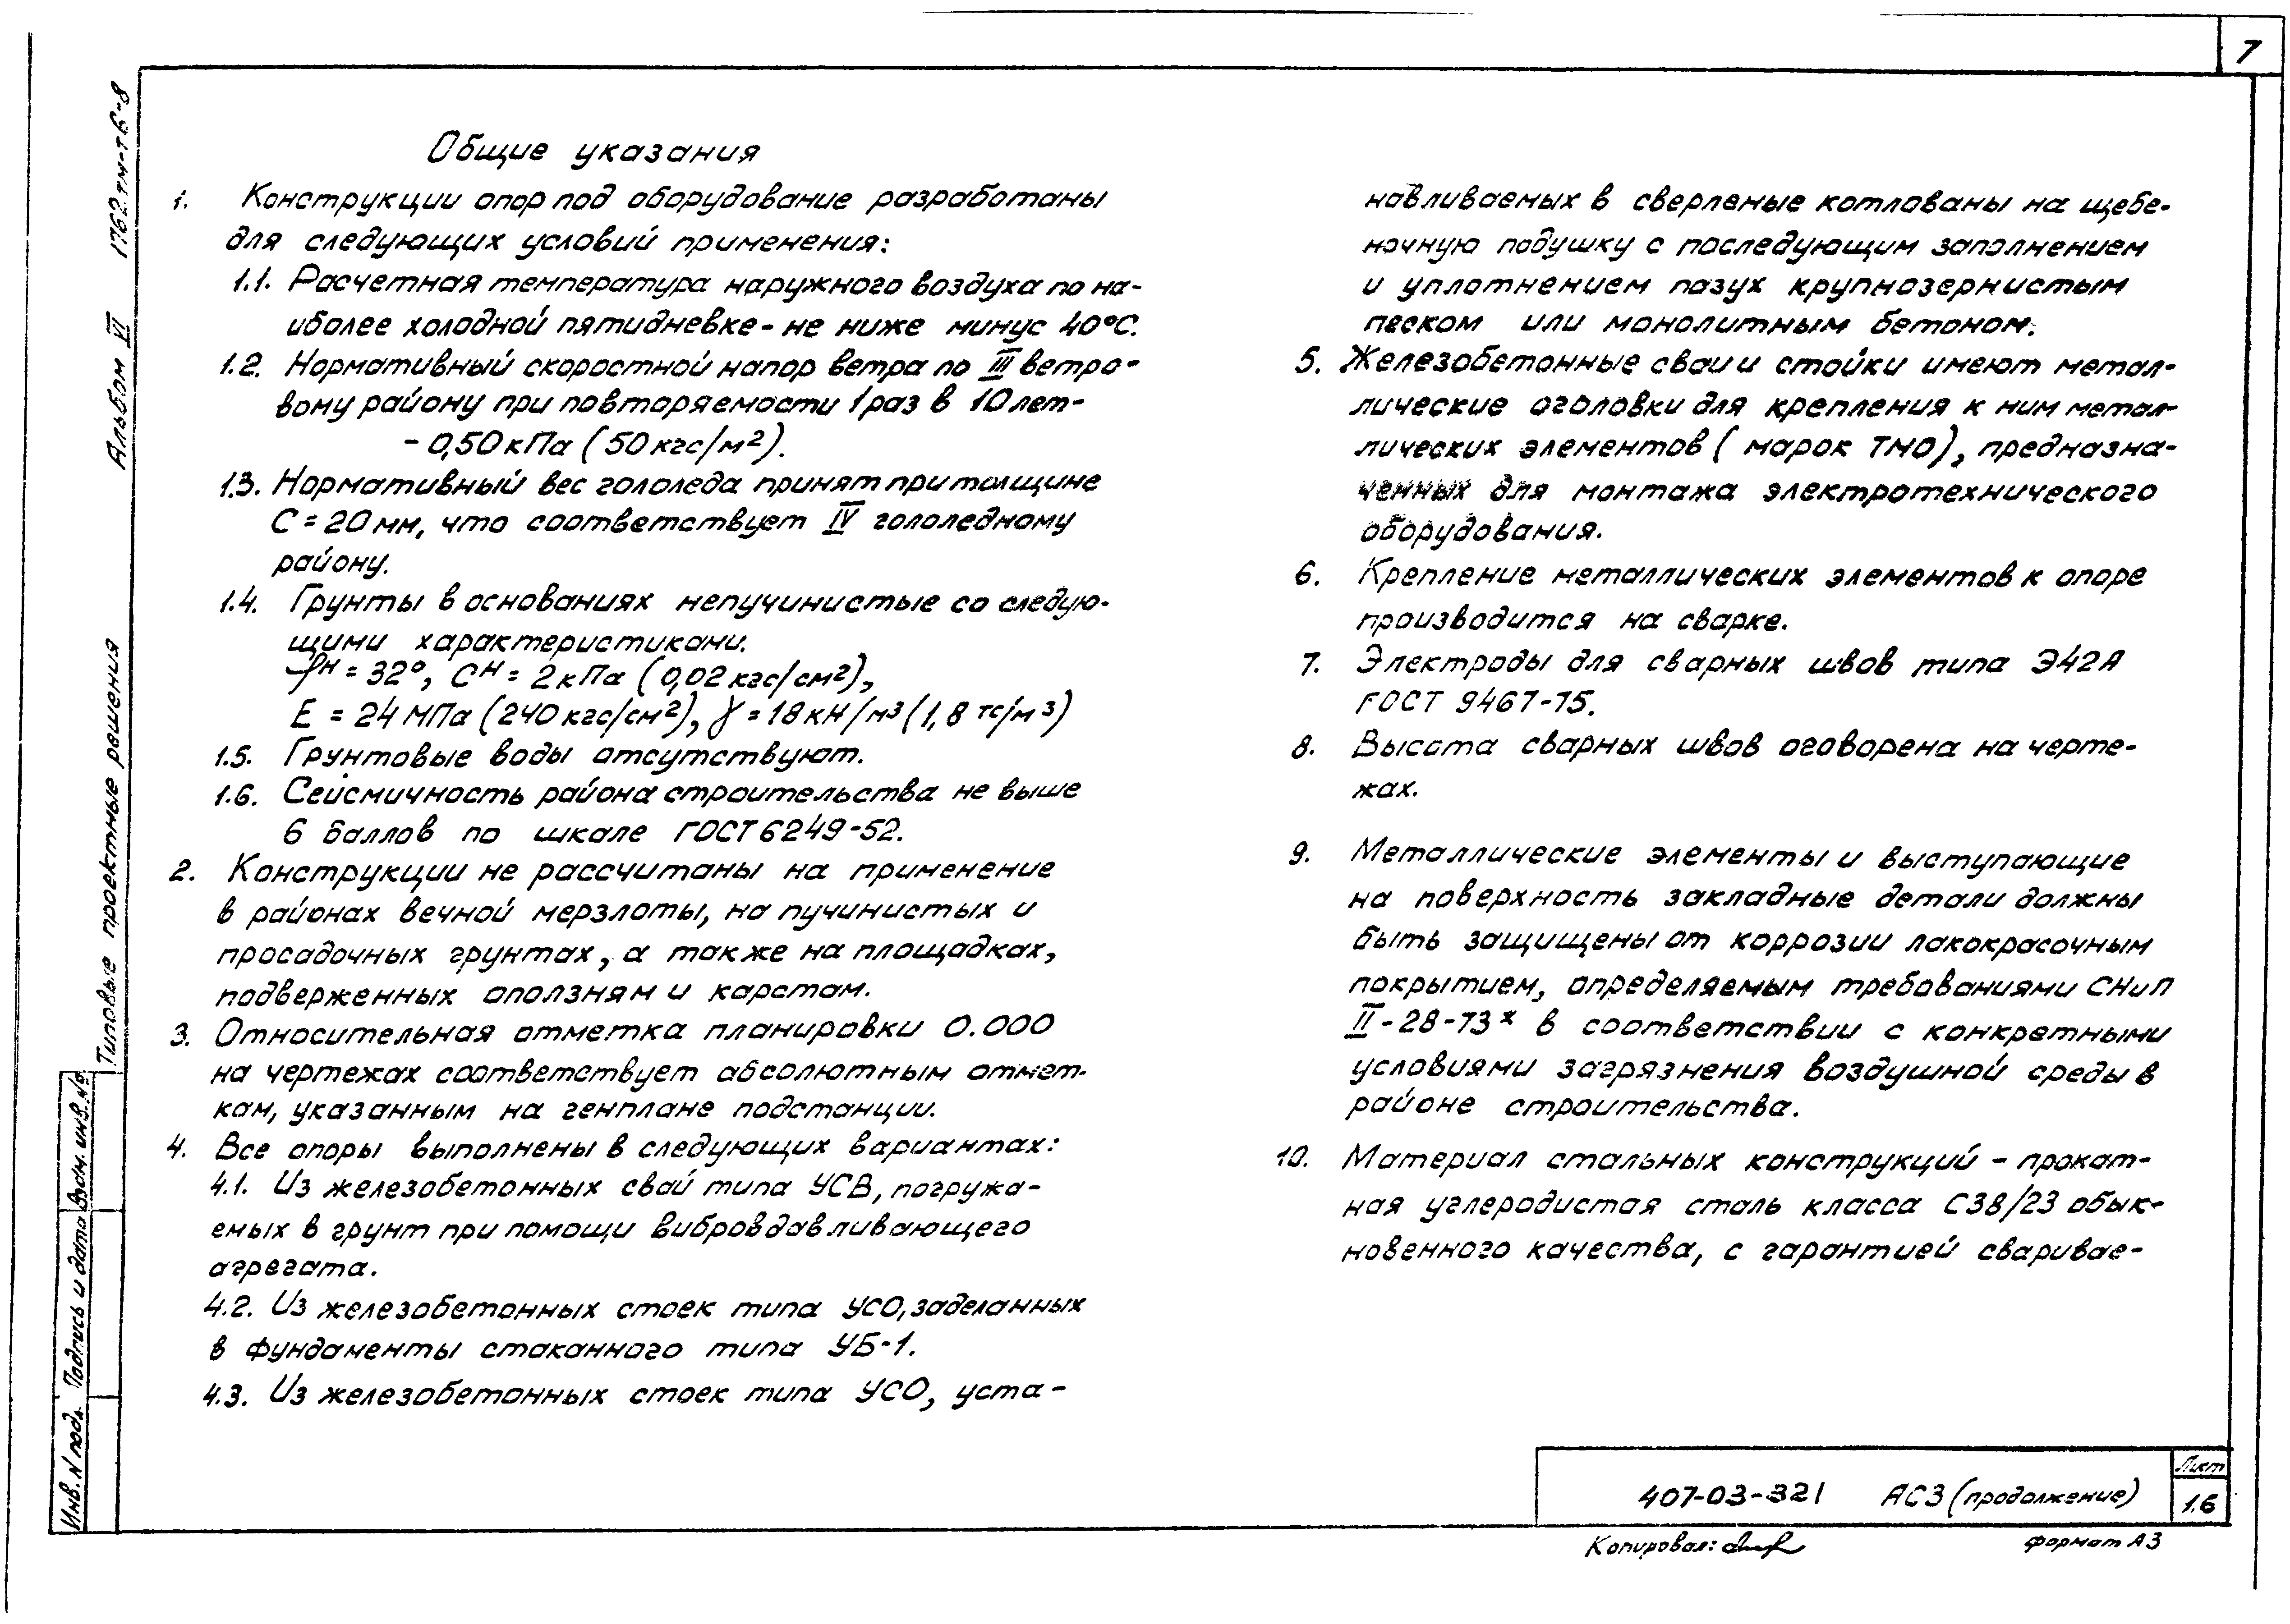 7
Общие указания
1. Конструкции опор под оборудование разработаны
для следующих условий применения:
1.1. Расчетная температура наружного воздуха по на-
иболее холодной пятидневке - не ниже минус 40°С.
1.2. Нормативный скоростной напор ветра по III ветро-
вому району при повторяемости 1 раз в 10 лет-
- 0,50 кПа (50 кгс/м²).
1.3. Нормативный вес гололеда принят при толщине
С = 20 мм, что соответствует IV гололедному
району.
1.4. Грунты в основаниях непучинистые со следую-
щими характеристиками.
φᴴ = 32°, Cᴴ = 2 кПа (0,02 кгс/см²),
E = 24 МПа (240 кгс/см²), γ = 18 кН/м³ (1,8 тс/м³)
1.5. Грунтовые воды отсутствуют.
1.6. Сейсмичность района строительства не выше
6 баллов по шкале ГОСТ 6249-52.
2. Конструкции не рассчитаны на применение
в районах вечной мерзлоты, на пучинистых и
просадочных грунтах, а также на площадках,
подверженных оползням и карстам.
3. Относительная отметка планировки 0.000
на чертежах соответствует абсолютным отмет-
кам, указанным на генплане подстанции.
4. Все опоры выполнены в следующих вариантах:
4.1. Из железобетонных свай типа УСВ, погружа-
емых в грунт при помощи вибровдавливающего
агрегата.
4.2. Из железобетонных стоек типа УСО, заделанных
в фундаменты стаканного типа УБ-1.
4.3. Из железобетонных стоек типа УСО, уста-
навливаемых в сверленые котлованы на щебе-
ночную подушку с последующим заполнением
и уплотнением пазух крупнозернистым
песком или монолитным бетоном.
5. Железобетонные сваи и стойки имеют метал-
лические оголовки для крепления к ним метал-
лических элементов (марок ТМО), предназна-
ченных для монтажа электротехнического
оборудования.
6. Крепление металлических элементов к опоре
производится на сварке.
7. Электроды для сварных швов типа Э42А
ГОСТ 9467-75.
8. Высота сварных швов оговорена на черте-
жах.
9. Металлические элементы и выступающие
на поверхность закладные детали должны
быть защищены от коррозии лакокрасочным
покрытием, определяемым требованиями СНиП
II-28-73ˣ в соответствии с конкретными
условиями загрязнения воздушной среды в
районе строительства.
10. Материал стальных конструкций - прокат-
ная углеродистая сталь класса С38/23 обык-
новенного качества, с гарантией сваривае-
407-03-321 АС3 (продолжение)
Лист
1.6
Копировал:
формат А3
Типовые проектные решения Альбом VI 1762тм-т6-8
Инв. N подл. Подпись и дата Взам. инв. №